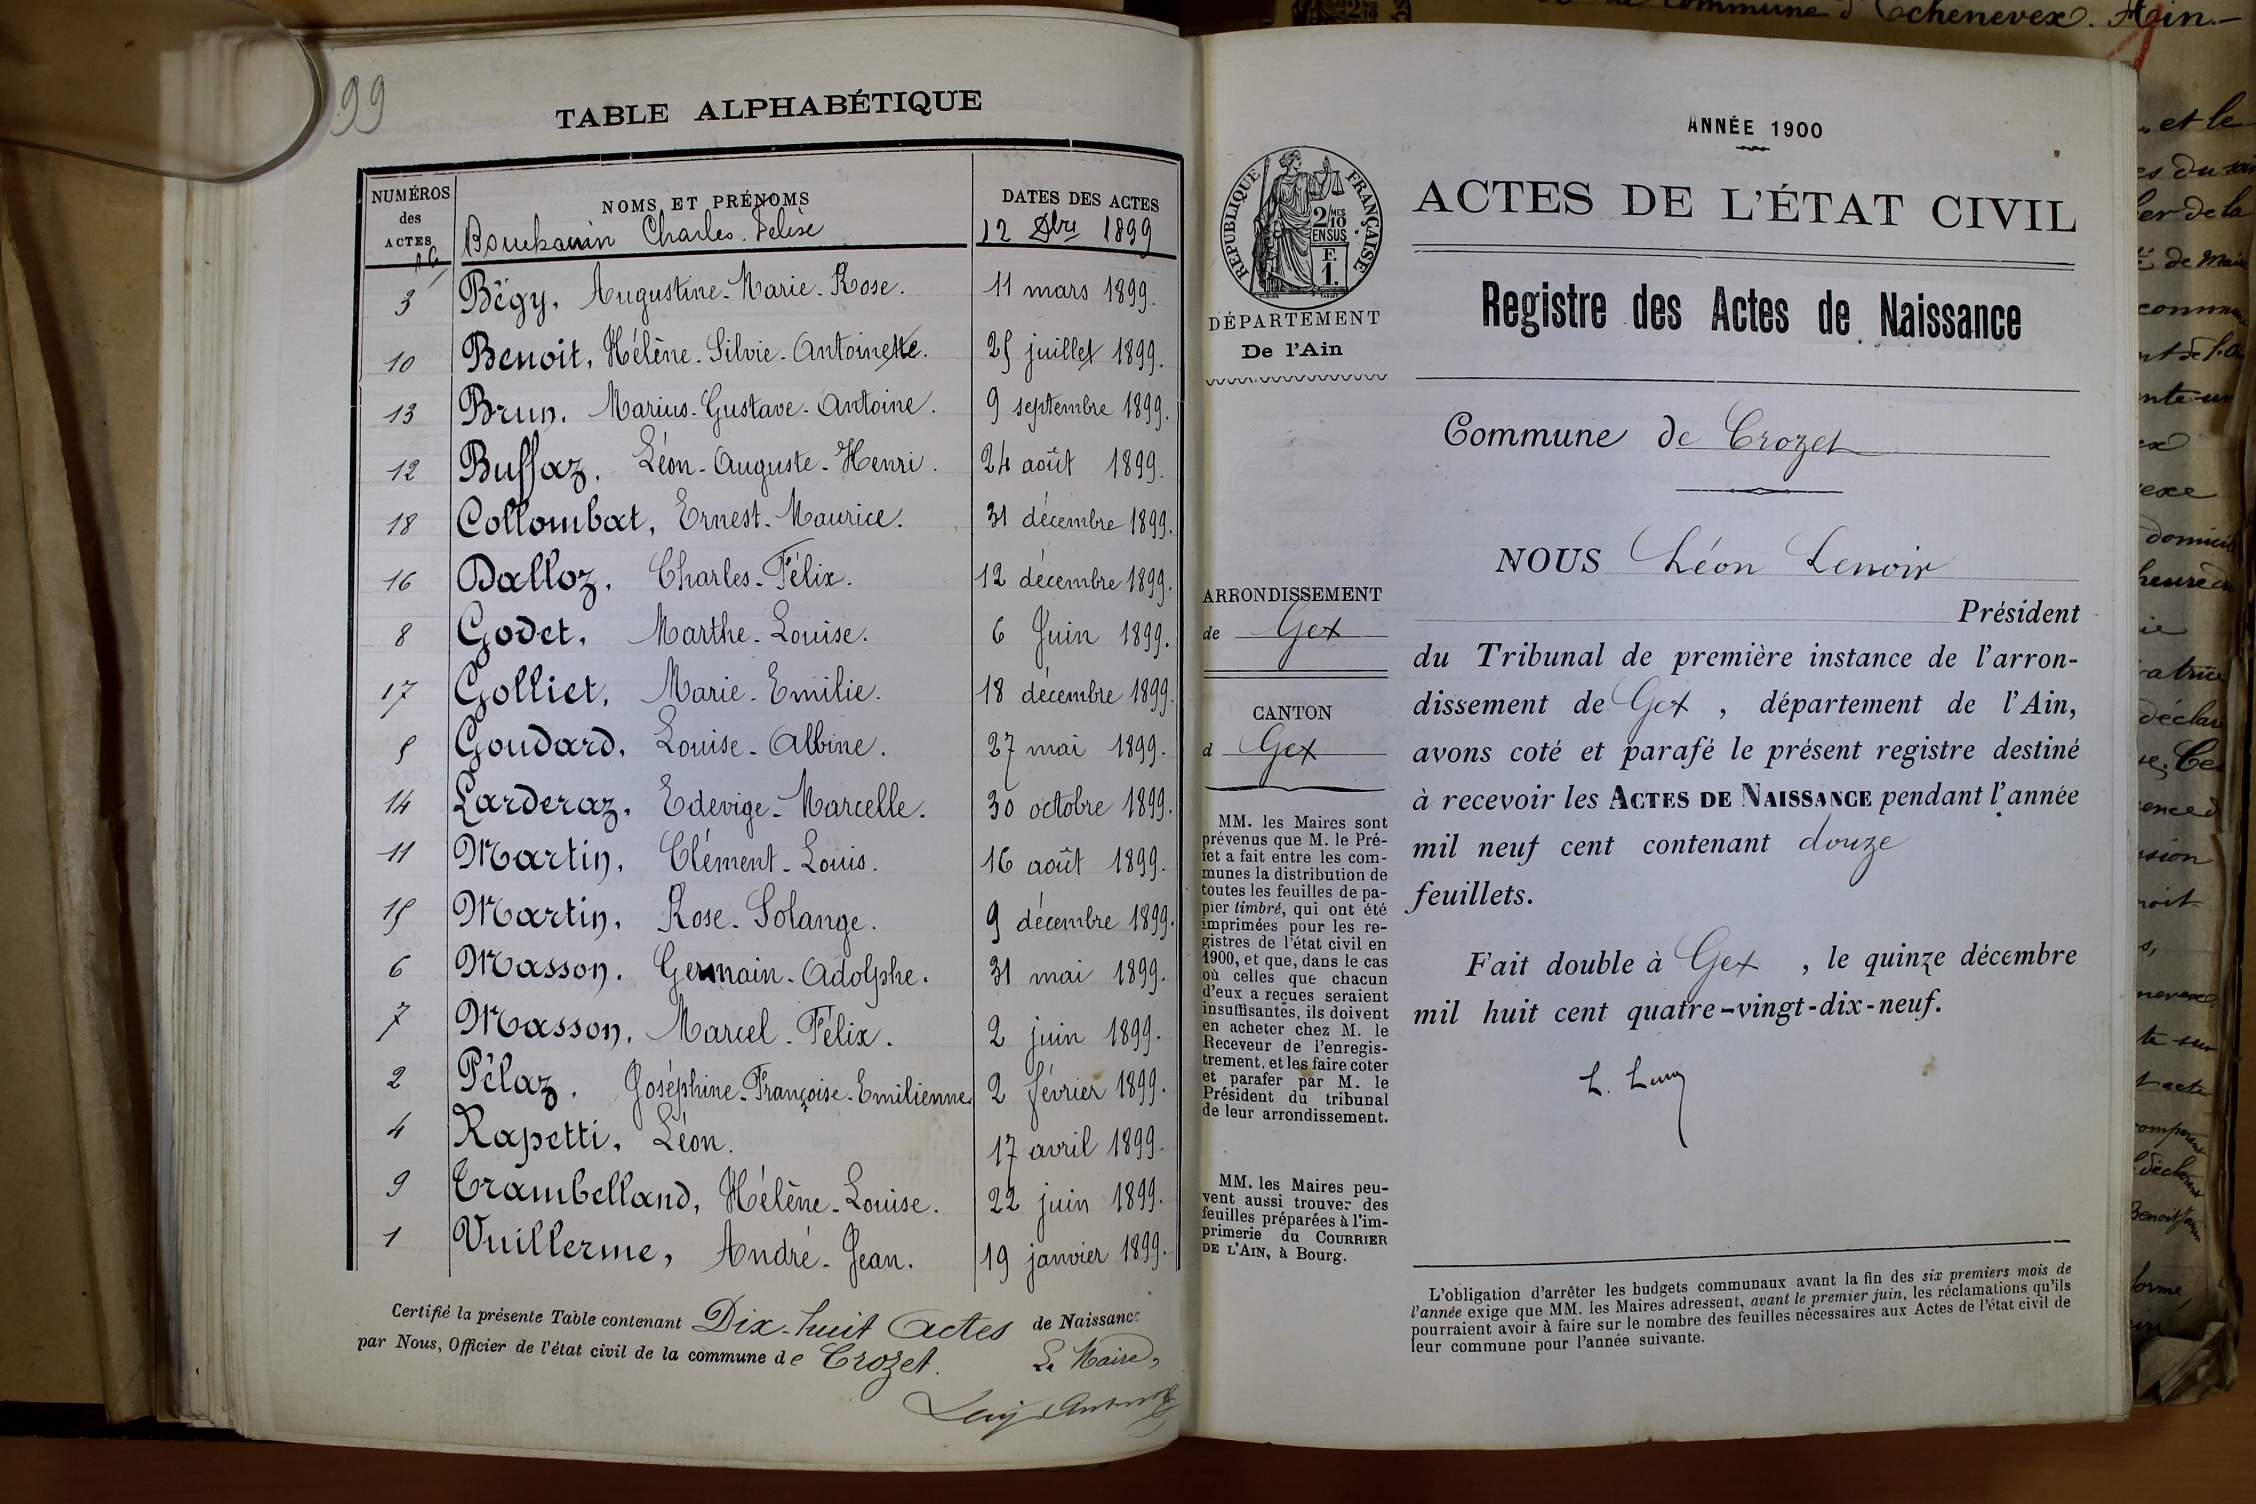 99
TABLE ALPHABÉTIQUE
NUMÉROS des ACTES NOMS ET PRÉNOMS DATES DES ACTES
16 Bourbaouin Charles Félise 12 Xbre 1899
3 Bégy, Augustine-Marie-Rose. 11 mars 1899.
10 Benoit, Hélène-Silvie-Antoinette. 25 juillet 1899.
13 Brun, Marius-Gustave-Antoine. 9 septembre 1899.
12 Buffaz, Léon-Auguste-Henri. 24 août 1899.
18 Collombat, Ernest-Maurice. 31 décembre 1899.
16 Dalloz, Charles-Félix. 12 décembre 1899.
8 Godet, Marthe-Louise. 6 Juin 1899.
17 Golliet, Marie-Emilie. 18 décembre 1899.
5 Goudard, Louise-Albine. 27 mai 1899.
14 Larderaz, Edevige-Marcelle. 30 octobre 1899.
11 Martin, Clément-Louis. 16 août 1899.
15 Martin, Rose-Solange. 9 décembre 1899.
6 Masson, Germain-Adolphe. 31 mai 1899.
7 Masson, Marcel-Félix. 2 juin 1899.
2 Pélaz, Joséphine-Françoise-Emilienne 2 février 1899.
4 Rapetti, Léon. 17 avril 1899.
9 Trambelland, Hélène-Louise. 22 juin 1899.
1 Vuillerme, André-Jean. 19 janvier 1899.
Certifié la présente Table contenant Dix-huit actes de Naissance
par Nous, Officier de l'état civil de la commune de Crozet.
Le Maire,
ANNÉE 1900
RÉPUBLIQUE FRANÇAISE
2/10 MES
EN SUS
F.
1.
DÉPARTEMENT
De l'Ain
ARRONDISSEMENT
de Gex
CANTON
d Gex
MM. les Maires sont
prévenus que M. le Pré-
fet a fait entre les com-
munes la distribution de
toutes les feuilles de pa-
pier timbré, qui ont été
imprimées pour les re-
gistres de l'état civil en
1900, et que, dans le cas
où celles que chacun
d'eux a reçues seraient
insuffisantes, ils doivent
en acheter chez M. le
Receveur de l'enregis-
trement, et les faire coter
et parafer par M. le
Président du tribunal
de leur arrondissement.
MM. les Maires peu-
vent aussi trouver des
feuilles préparées à l'im-
primerie du COURRIER
DE L'AIN, à Bourg.
ACTES DE L'ÉTAT CIVIL
Registre des Actes de Naissance
Commune de Crozet
NOUS Léon Lenoir
Président
du Tribunal de première instance de l'arron-
dissement de Gex, département de l'Ain,
avons coté et parafé le présent registre destiné
à recevoir les ACTES DE NAISSANCE pendant l'année
mil neuf cent contenant douze
feuillets.
Fait double à Gex, le quinze décembre
mil huit cent quatre-vingt-dix-neuf.
L'obligation d'arrêter les budgets communaux avant la fin des six premiers mois de
l'année exige que MM. les Maires adressent, avant le premier juin, les réclamations qu'ils
pourraient avoir à faire sur le nombre des feuilles nécessaires aux Actes de l'état civil de
leur commune pour l'année suivante.
commune d'Echenevex. Ain.-